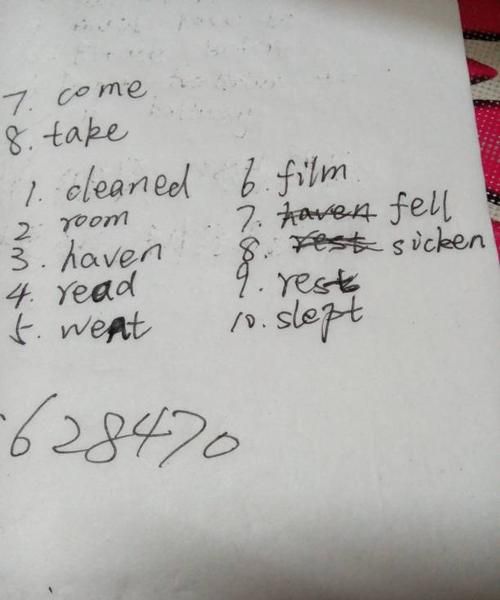 7. come
8. take
1. cleaned
2 room
3. haven
4. read
5. went
6. film
7. haven fell
8. rest sicken
9. rest
10. slept
628470